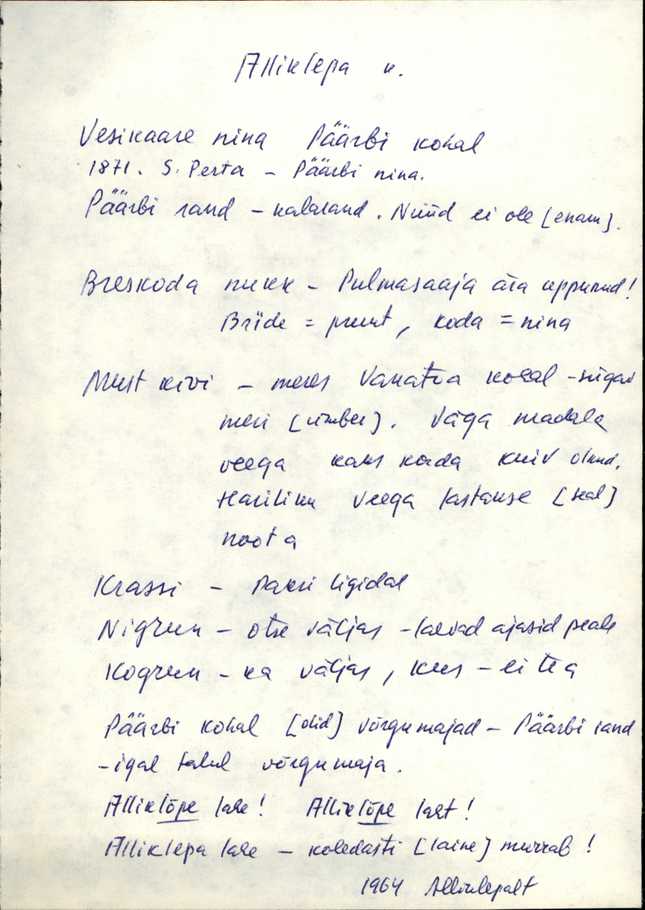 Alliklepa k.
Vesikaare nina Päärbi kohal
1871. S. Perta - Päärbi nina.
Päärbi rand - kalarand. Nüüd ei ole [enam].
Breskoda nukk - Pulmasaaja ära uppunud!
Bride = pruut, koda = nina
Must kivi - meres Vanatoa kohal - sügav
meri [ümber]. Väga madala
veega kaks korda kuiv olnud.
Hariliku veega lastakse [seal]
noota
Krassi - Pakri ligidal
Nigrun - otse väljas - laevad ajasid peale
Kogrun - ka väljas, kus - ei tea
Päärbi kohal [olid] võrgumajad - Päärbi rand
- igal talul võrgumaja.
Alliklõpe lahe! Alliklõpe laht!
Alliklepa lahe - koledasti [laine] murrab!
1964 Alliklepalt